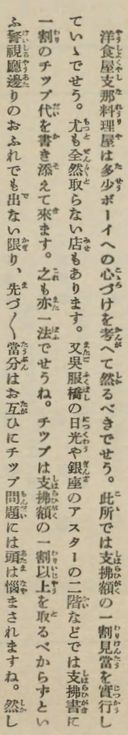 洋食屋支那料理屋は多少ボーイへの心づけを考へて然るべきでせう。此所では支拂額の一割見當を實行し
てい丶でせう。尤も全然取らない店もあります。又呉服橋の日光や銀座のアスターの二階などでは支拂書に
一割のチップ代を書き添えて來ます。之も亦一法でせうね。チップは支拂額の一割以上を取るべからずとい
ふ警視廳邊りのおふれでも出ない限り、先づ〱當分はお互ひにチップ問題には頭は惱まされますね。然し